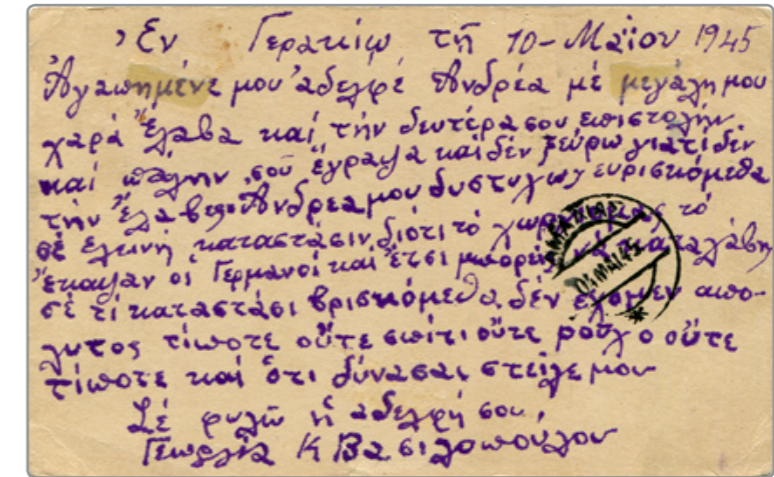 Ἐν Γερακίῳ τῇ 10-Μαΐου 1945
Ἀγαπημένε μου ἀδελφέ Ἀνδρέα μέ μεγάλη μου
χαρά ἔλαβα καί τήν δευτέρα σου επιστολήν
καί πάλην σοῦ ἔγραψα καί δέν ξεύρω γιατί δέν
τήν ἔλαβες Ἀνδρεα μου δυστυχως ευρισκόμεθα
σέ ελεινή καταστάσιν διότι τό χωριό μας τό
ἔκαψαν οἱ Γερμανοί καί ἔτσι μπορεῖς νά καταλάβῃς
σέ τί καταστάσι βρισκόμεθα, δέν έχομεν απο-
λυτος τίποτε οὔτε σπίτι οὔτε ροῦχο οὔτε
τίποτε καί ὅτι δύνασαι στείλε μου
Σέ φιλῶ ἡ αδελφή σου,
Γεωργία Κ Βασιλοπούλου